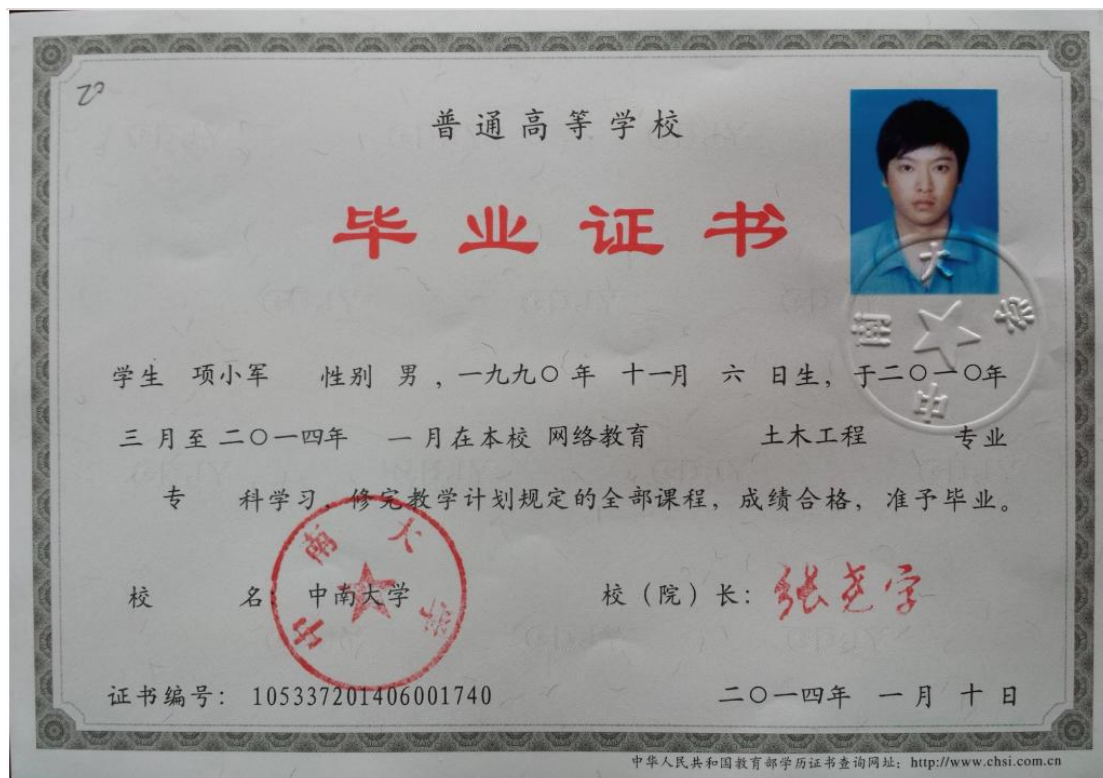 普通高等学校
毕业证书
学生 项小军 性别 男，一九九〇年 十一月 六 日生，于二〇一〇年
三 月至 二〇一四年 一 月在本校 网络教育 土木工程 专业
专 科学习，修完教学计划规定的全部课程，成绩合格，准予毕业。
校 名：中南大学 校（院）长：张尧学
中南大学
中南大学
证书编号：105337201406001740 二〇一四年 一 月 十 日
中华人民共和国教育部学历证书查询网址：http://www.chsi.com.cn